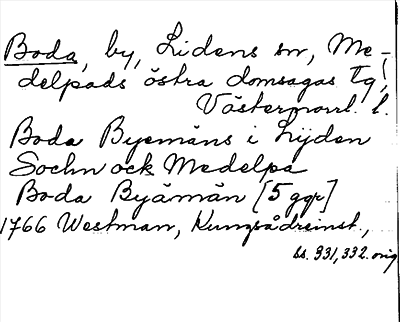 Boda, by, Lidens sn, Me-
delpads östra domsagas tg,
Västernorrl. l.
Boda Byemäns i Lijden
Sochn ock Medelpa
Boda Byämän [5 ggr]
1766 Westman, Kungsådreinst.,
ss. 331, 332. orig